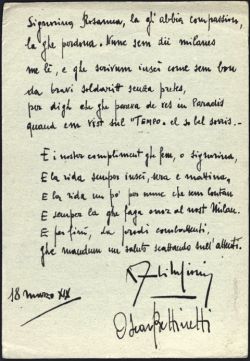 Signorina Rosanna, la gh'abbia compassion,
la ghe perdona. Nune sem dü milanes
me lì, e ghe scrivum inscì come sem bon
da bravi soldaritt senza pretes,
per digh che gh' pareva de ves in Paradis
quand em vist sul "TEMPO" el so bel sorris.-
E i nostor compliment ghe fem, o signorina,
E la rida semper inscì, sera e mattina,
E la rida un po' per nunc che sem lontan
E sempre la ghe faga onor al nost Milan.
E per finì, da predi combattenti,
ghe mandum un saluto scattando sull'attenti.
18 marzo XIX
Oscar Bettinetti